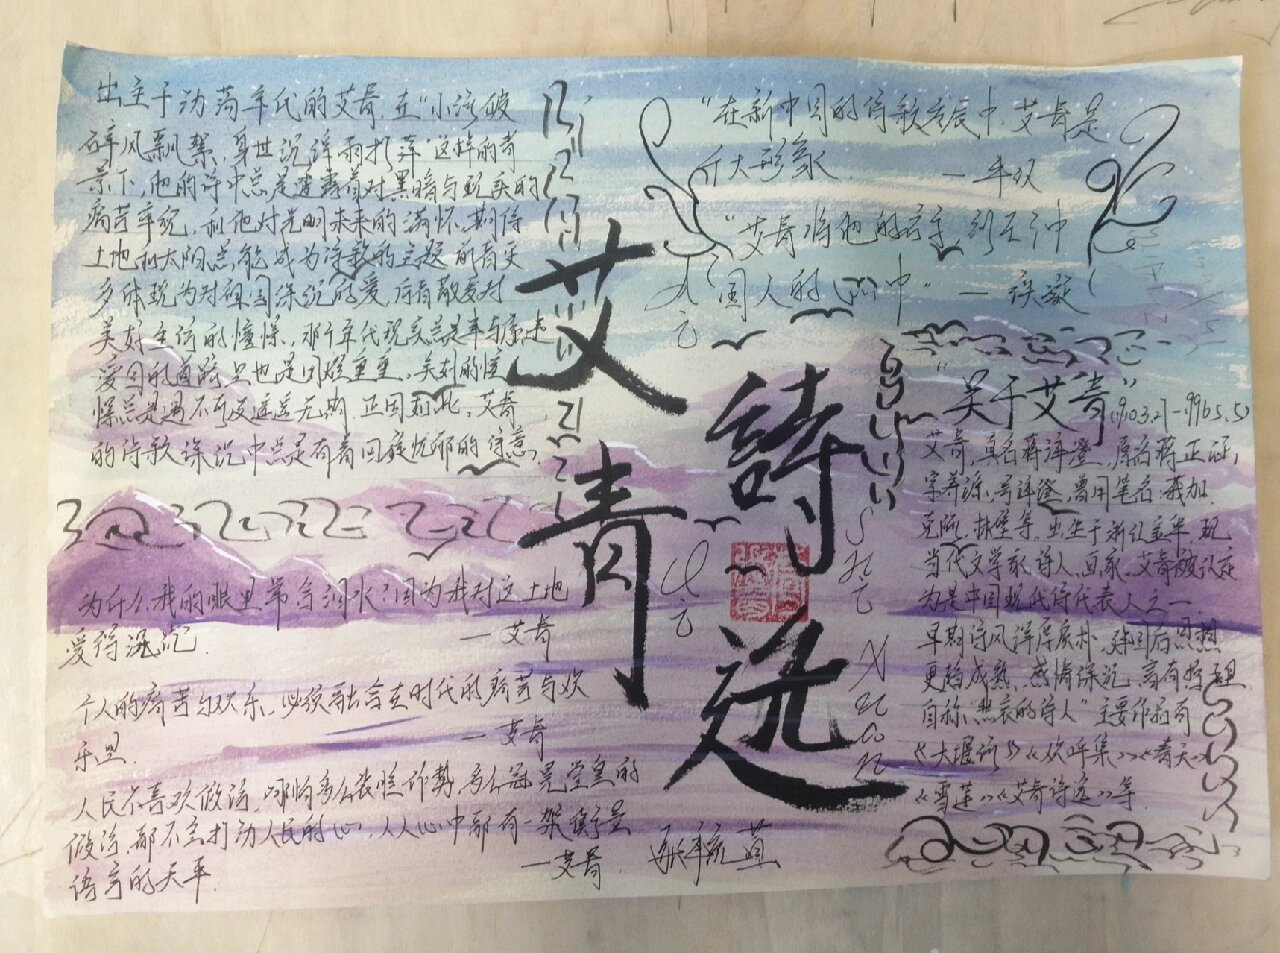 出生于动荡年代的艾青.在"小流破
碎风飘絮,身世沉浮雨打萍"这样的背
景下,他的诗中总是透露着对黑暗与现实的
痛苦 和他对光明未来的满怀期待
土地和太阳总能成为诗歌的主题 前者更
多体现为对祖国深沉的爱,后者散发对
美好生活的憧憬.那个年代现实总是
爱国的道路上也是困难重重,美好的憧
憬总是遇不可及遥遥无期 正因如此,艾青
的诗歌深沉中总是有着 忧郁的诗意
为什么我的眼里常含泪水?因为我对这土地
爱得深沉.
—艾青
个人的痛苦与欢乐,必须融合在时代的痛苦与欢
乐里.
—艾青
人民不喜欢假话,哪怕多么装腔作势,多么冠冕堂皇的
假话,都不会打动人民的心,人人心中都有一架衡量
语言的天平.
—艾青.
艾青
詩选
"在新中国的诗歌发展中,艾青是
个大形象
"艾青将他的 刻在中
国人的心中"
"关于艾青"(1910.3.27-1996.5.5)
艾青,真名蒋海澄,原名蒋正涵,
字养源,号海澄,曾用笔名:莪加、
克阿、林壁等,出生于浙江金华,现
当代文学家诗人,画家.艾青被认定
为是中国现代诗代表人之一.
早期诗风浑厚质朴,建国后思想
更趋成熟,感情深沉,富有哲理.
自称"悲哀的诗人"主要作品有
《大堰河》《欢呼集》《春天》
《雪莲》《艾青诗选》等.